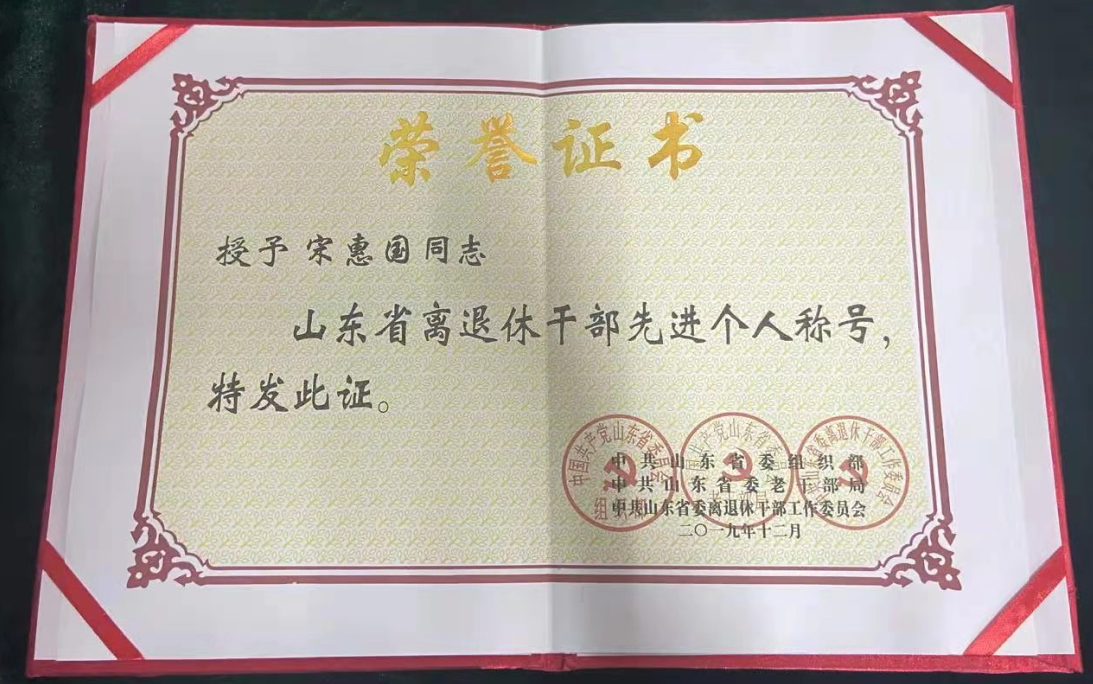 荣誉证书
授予 宋惠国同志
山东省离退休干部先进个人称号，
特发此证。
中共山东省委组织部
中共山东省委老干部局
中共山东省委离退休干部工作委员会
二〇一九年十二月
中国共产党山东省委员会